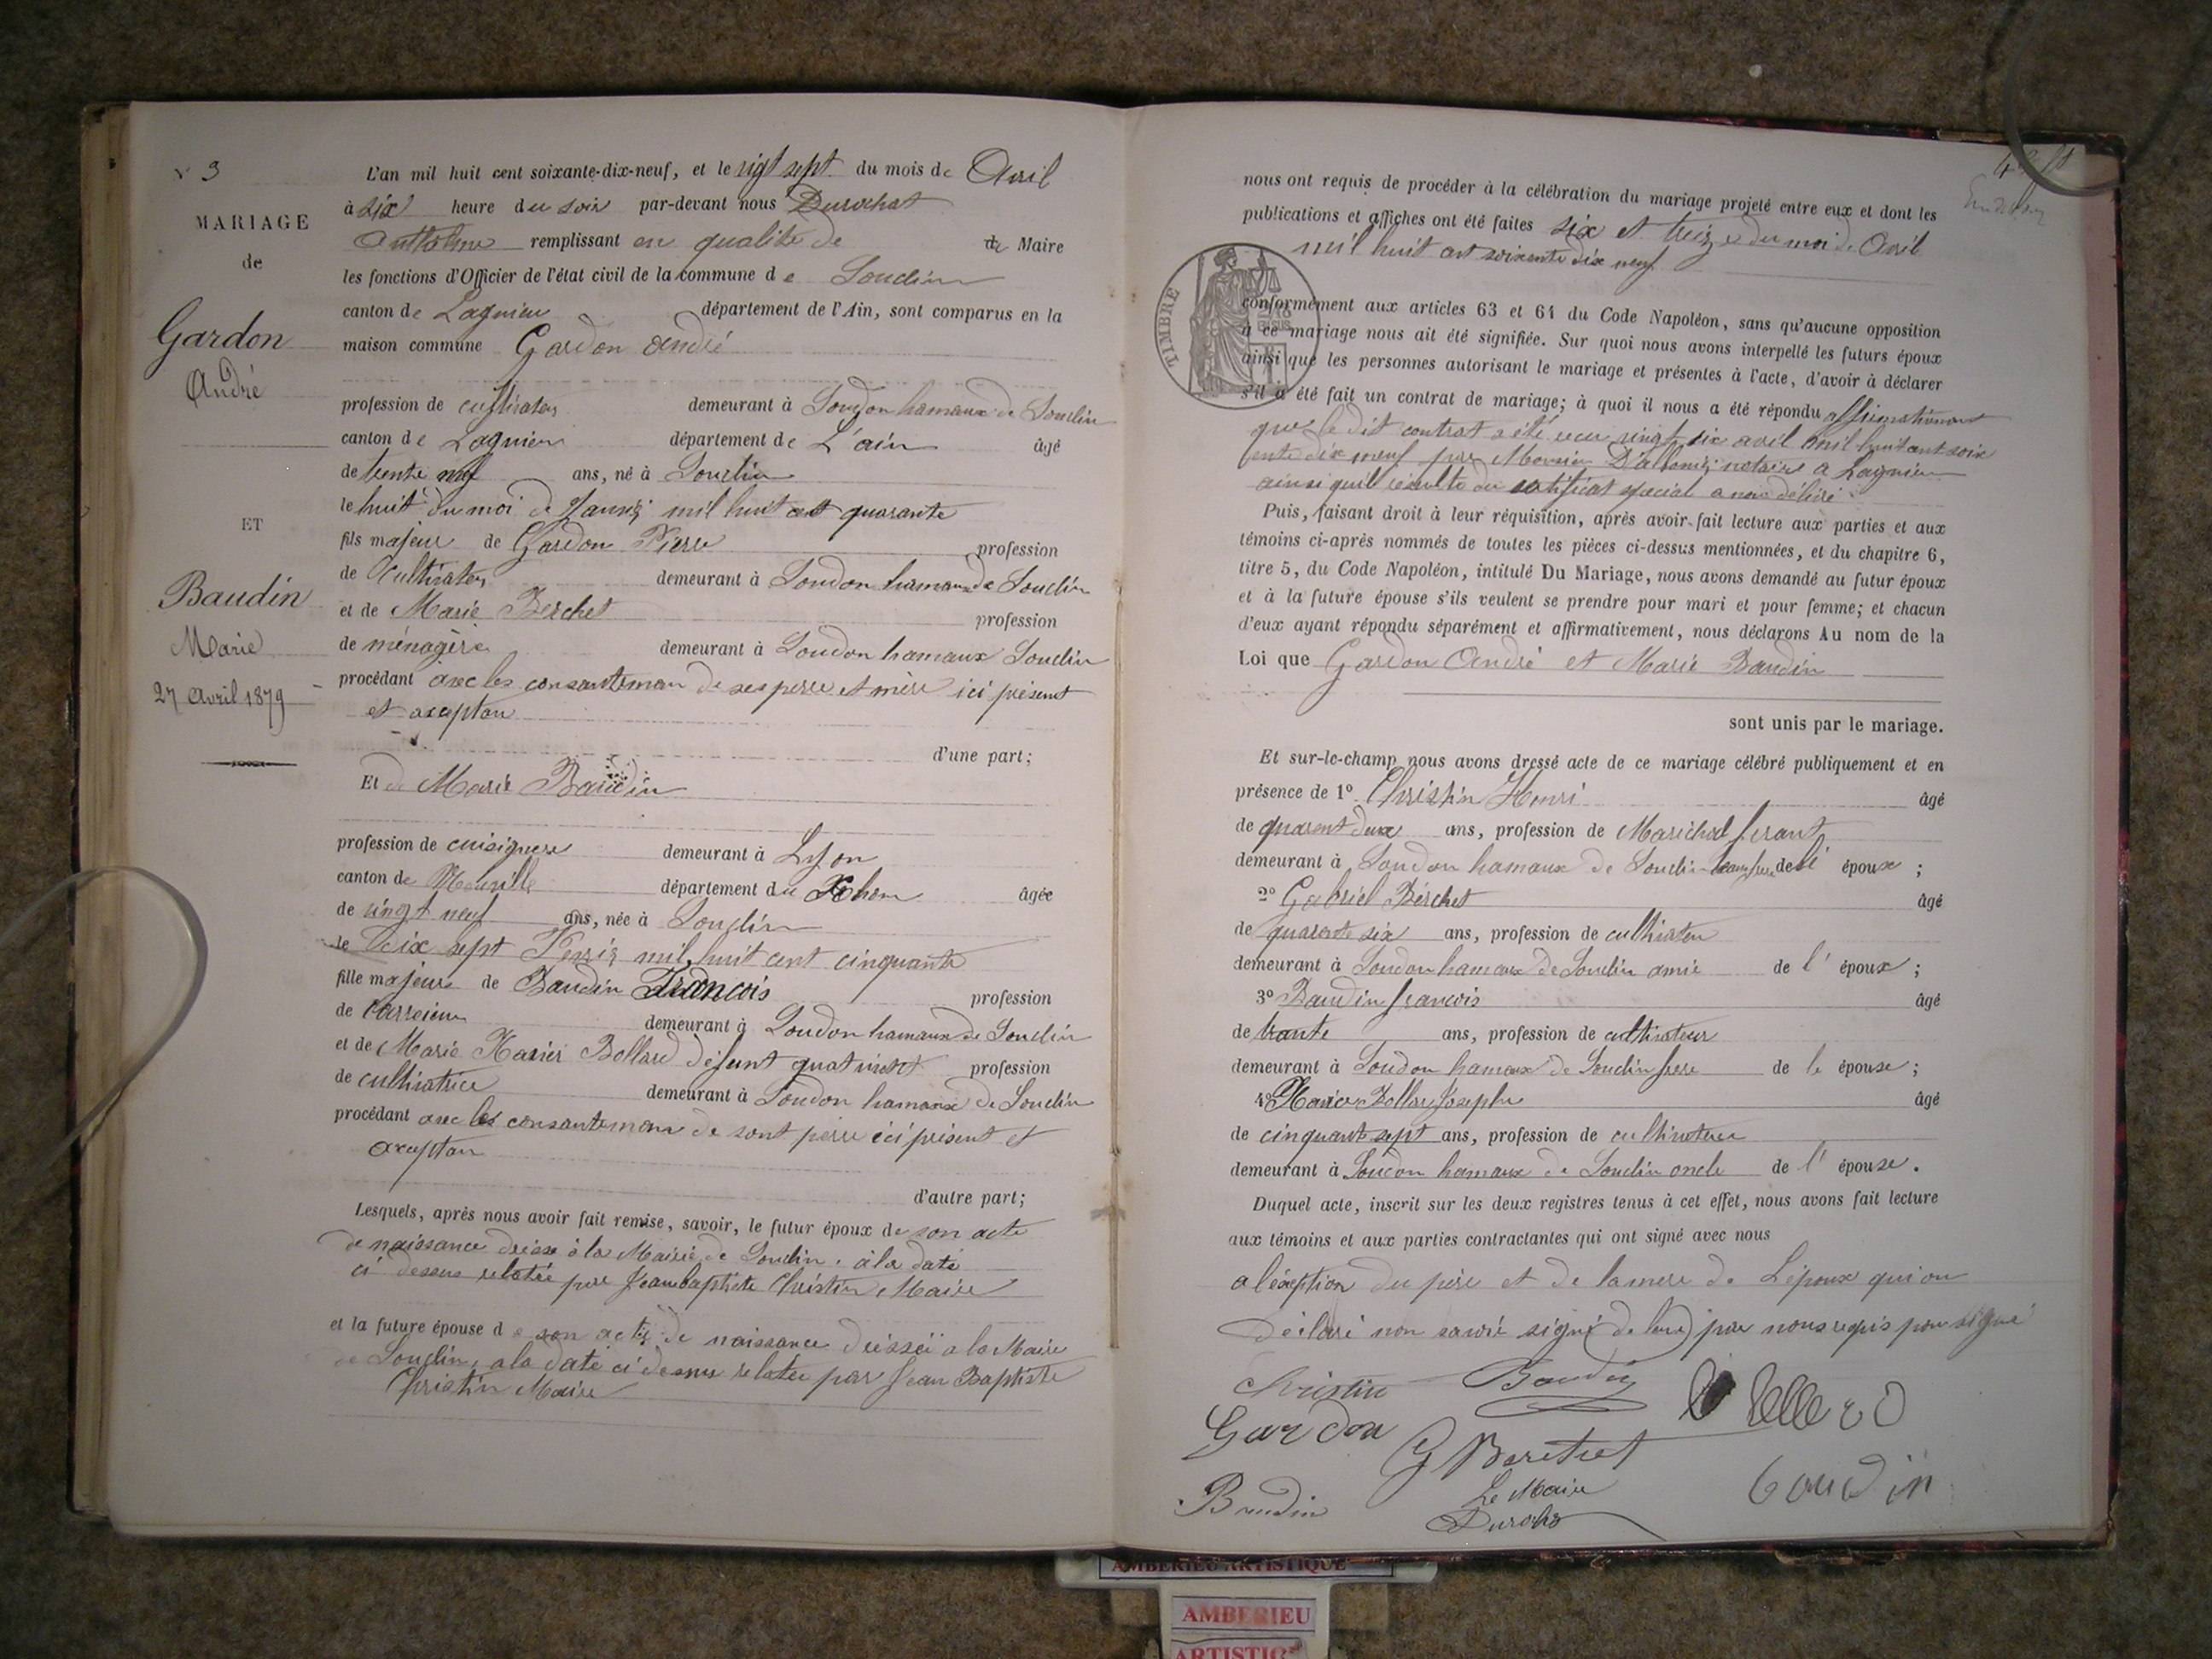 N° 3
MARIAGE
de
Gardon
André
ET
Baudin
Marie
27 Avril 1879
L'an mil huit cent soixante-dix-neuf, et le vigt sept du mois de Avril
à six heure du soir par-devant nous Durochat
Anthelme remplissant en qualité de Maire
les fonctions d'Officier de l'état civil de la commune de Souclin
canton de Lagnieu département de l'Ain, sont comparus en la
maison commune Gardon André
profession de cultivateur demeurant à Soudon hamaux de Souclin
canton de Lagnieu département de L'ain âgé
de trente neuf ans, né à Souclin
le huit du moi de Janvier mil huit cent quarante
fils majeur de Gardon Pierre profession
de Cultivateur demeurant à Soudon hamau de Souclin
et de Marie Berchet profession
de ménagère demeurant à Soudon hamaux Souclin
procédant avec les consanteman de ses perre et mère ici présent
et axceptan
d'une part;
Et de Marie Baudin
profession de cuisignere demeurant à Lyon
canton de Neuville département du Rhone âgée
de vingt neuf ans, née à Souclin
le Dix sept Fevrier mil huit cent cinquante
fille majeure de Baudin François profession
de demeurant à Soudon hamaux de Souclin
et de Marie Xavier Bollard défunt profession
de cultivatrice demeurant à Soudon hamaux de Souclin
procédant avec les consanteman de sont perre ici présent et
axceptan
d'autre part;
Lesquels, après nous avoir fait remise, savoir, le futur époux de son acte
de naissance à la Mairie de Souclin à la date
ci dessus relatée par Jean baptiste Christin Maire
et la future épouse de son acte de naissance à la Mairie
de Souclin, a la date ci dessus relatée par Jean Baptiste
Christin Maire
nous ont requis de procéder à la célébration du mariage projeté entre eux et dont les
publications et affiches ont été faites six et treize du moi de Avril
mil huit cent soixente dix neuf
TIMBRE
conformément aux articles 63 et 64 du Code Napoléon, sans qu'aucune opposition
à ce mariage nous ait été signifiée. Sur quoi nous avons interpellé les futurs époux
ainsi que les personnes autorisant le mariage et présentes à l'acte, d'avoir à déclarer
s'il a été fait un contrat de mariage; à quoi il nous a été répondu
que le dit contrat a été vingt six avril mil huit cent soix
ente dix neuf par Monsieur notaire a Lagnieu
ainsi quil résulte du certificat spécial a nous délivré
Puis, faisant droit à leur réquisition, après avoir fait lecture aux parties et aux
témoins ci-après nommés de toutes les pièces ci-dessus mentionnées, et du chapitre 6,
titre 5, du Code Napoléon, intitulé Du Mariage, nous avons demandé au futur époux
et à la future épouse s'ils veulent se prendre pour mari et pour femme; et chacun
d'eux ayant répondu séparément et affirmativement, nous déclarons Au nom de la
Loi que Gardon André et Marie Baudin
sont unis par le mariage.
Et sur-le-champ nous avons dressé acte de ce mariage célébré publiquement et en
présence de 1° Christin Henri âgé
de quarent deux ans, profession de Maréchal ferant
demeurant à Soudon hamaux de Souclin beau frere de l' époux ;
2° Gabriel Bérchet âgé
de quarente six ans, profession de cultivateur
demeurant à Soudon hamaux de Souclin amie de l' époux ;
3° Baudin francois âgé
de trante ans, profession de cultivateur
demeurant à Soudon hamaux de Souclin frere de le épouse ;
4° Xavier Bollar Joseph âgé
de cinquant sept ans, profession de cultivateur
demeurant à Soudon hamaux de Souclin oncle de l' épouse.
Duquel acte, inscrit sur les deux registres tenus à cet effet, nous avons fait lecture
aux témoins et aux parties contractantes qui ont signé avec nous
a léxeption du père et de la mere de Lépoux qui on
déclaré non savoir signé (de leur) par nous requis pour signé
Christin Baudin
Gardon G Berchet
Baudin Le Maire
Durocha
baudin
AMBERIEU ARTISTIQUE
AMBERIEU
ARTISTIQUE